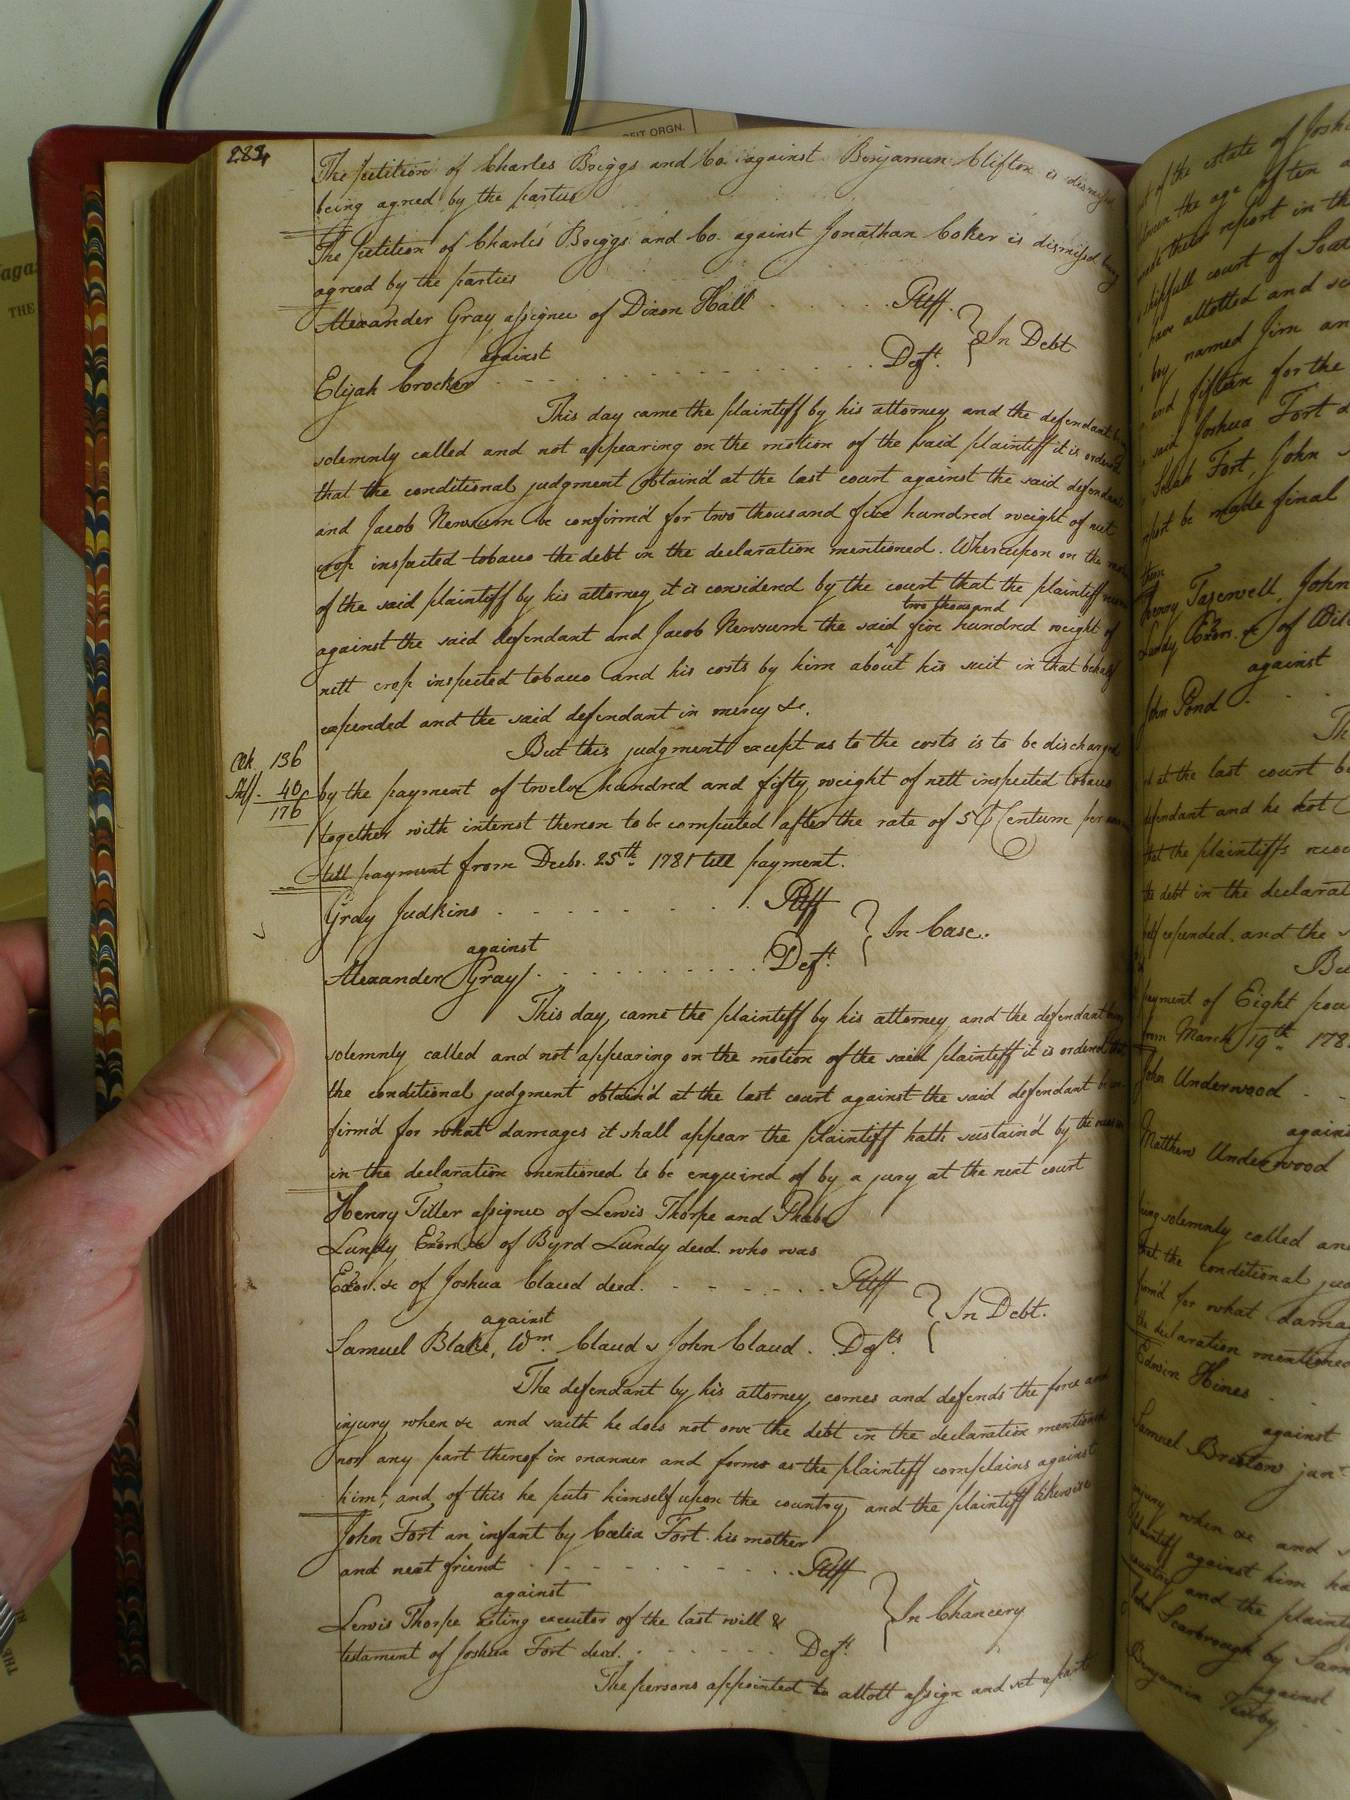 224
The petition of Charles Briggs and Co. against Benjamen Clifton is dismissed
being agreed by the parties
The petition of Charles Briggs and Co. against Jonathan Coker is dismissed being
agreed by the parties
Alexander Gray assignee of Dixon Hall Pltff.
against In Debt
Elijah Crocker Deft.
This day came the plaintiff by his attorney and the defendant
solemnly called and not appearing on the motion of the said plaintiff it is ordered
that the conditional judgment obtain'd at the last court against the said defendant
and Jacob Newsum be confirm'd for two thousand five hundred weight of nett
crop inspected tobacco the debt in the declaration mentioned. Whereupon on the
of the said plaintiff by his attorney it is considered by the court that the plaintiff
two thousand
against the said defendant and Jacob Newsum the said ^ five hundred weight of
nett crop inspected tobacco and his costs by him about his suit in that behalf
expended and the said defendant in mercy &c.
But this judgment except as to the costs is to be discharged
Clk. 136
by the payment of twelve hundred and fifty weight of nett inspected tobacco
Shff. 40
176
together with interest thereon to be computed after the rate of 5 P Centum per
till payment from Decbr. 25th. 1781 till payment.
Gray Judkins Pltff
against In Case.
Alexander Gray Deft.
This day came the plaintiff by his attorney and the defendant
solemnly called and not appearing on the motion of the said plaintiff it is ordered that
the conditional judgment obtain'd at the last court against the said defendant
firm'd for what damages it shall appear the plaintiff hath sustain'd by the
in the declaration mentioned to be enquired of by a jury at the next court
Henry Tiller assignee of Lewis Thorpe and Phebe
Lundy Exor. &c of Byrd Lundy decd. who was
Exor. &c of Joshua Claud decd. Pltff
against In Debt.
Samuel Blake, Wm. Claud & John Claud. Defts.
The defendant by his attorney comes and defends the force and
injury when &c and saith he does not owe the debt in the declaration mentioned
nor any part thereof in manner and form as the plaintiff complains against
him; and of this he puts himself upon the country, and the plaintiff likewise
John Fort an infant by Coelia Fort his mother
and next friend Pltff
against In Chancery
Lewis Thorpe acting executor of the last will &
testament of Joshua Fort decd. Deft.
The persons appointed to allott assign and set apart
of the estate of Josh
between the age of ten
made their report in th
have allotted and
boy named Jim an
and fifteen for the
said Joshua Fort
Fort, John
report be made final
Henry Tazewell, John
Lundy Exors. &c of
against
John Pond
at the last court
defendant and he not
that the plaintiffs
the debt in the declarat
expended, and the
payment of Eight
from March 19th 178
John Underwood
against
Matthew Underwood
being solemnly called and
that the conditional
firm'd for what dama
the declaration mentioned
Edwin Hines
against
Samuel Briston junr
injury when &c and
plaintiff against him
country and the plaint
John Scarbrough by Sam
against
Benjamin